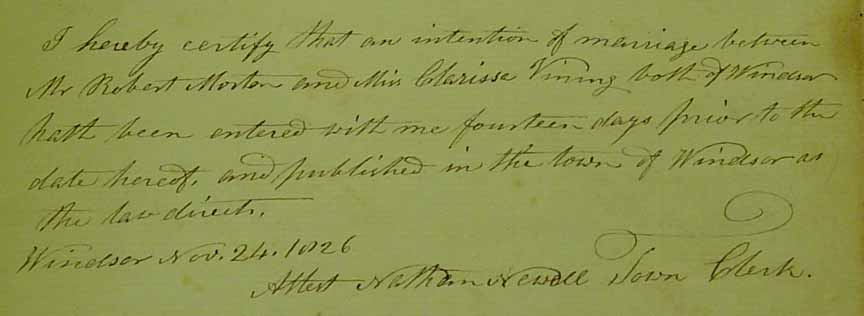 I hereby certify that an intention of marriage between
Mr Robert Morton and Miss Clarissa Vining both of Windsor
hath been entered with me fourteen days prior to the
date hereof, and published in the town of Windsor as
the law directs.
Windsor Nov. 24. 1826
Attest Nathan Newell Town Clerk.